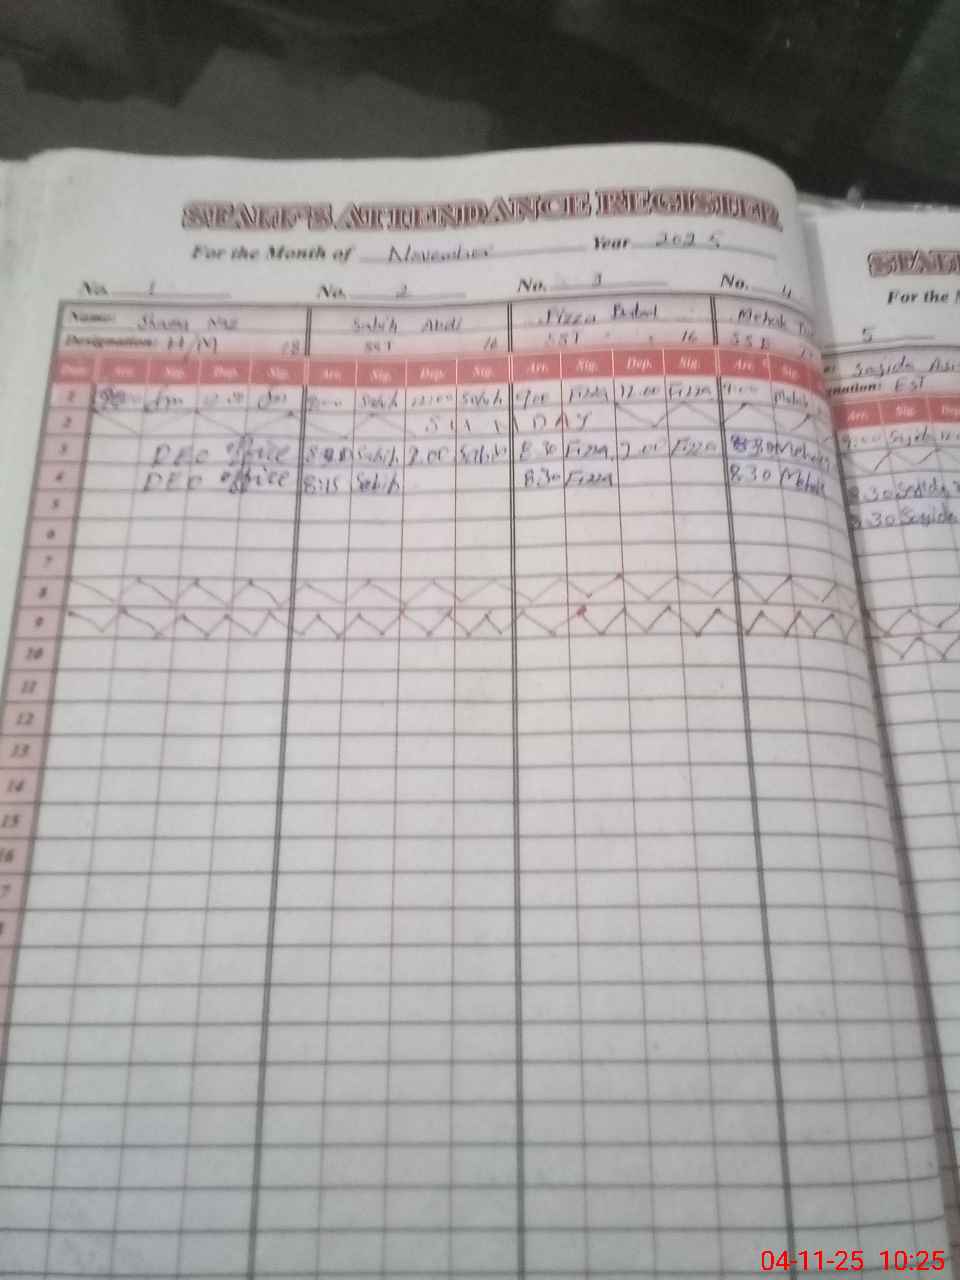 STAFF'S ATTENDANCE REGISTER
For the Month of November Year 2025
No. 1 No. 2 No. 3 No. 4
Name: Sabih Fizza Mehak
Designation: H/M 18 SST 16 SST 16 SST
Date Arr. Sig. Dep. Sig. Arr. Sig. Dep. Sig. Arr. Sig. Dep. Sig. Arr. Sig.
1 Sabih 12:00 Sabih 9:00 Fizza 12:00 Fizza 9:00 Mehak
2 SUNDAY
3 DEO office Sabih 2:00 Sabih 8:30 Fizza 2:00 Fizza 8:30 Mehak
4 DEO office 8:15 Sabih 8:30 Fizza 8:30 Mehak
5
6
7
8
9
10
11
12
13
14
15
16
7
STAF
For the M
5
Sajida
nation: EST
Arr. Sig. Dep
9:00 Sajida
8:30 Sajida
8:30 Sajida
04-11-25 10:25